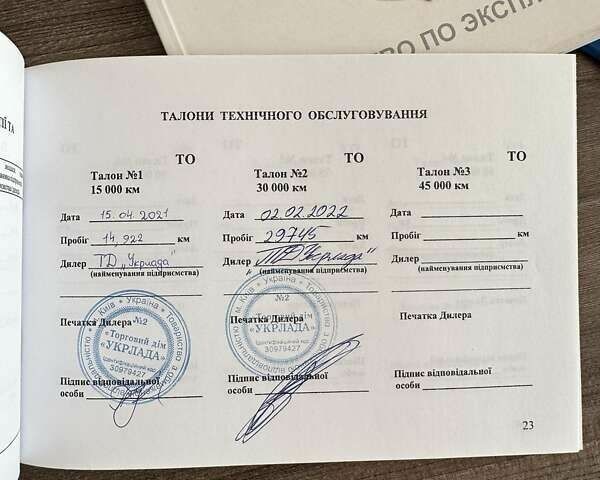 ВО ПО ЭКСПЛ
ІЇ ТА
ТАЛОНИ ТЕХНІЧНОГО ОБСЛУГОВУВАННЯ
ТО
Талон №1
15 000 км
Дата 15.04.2021
Пробіг 14 922 км
Дилер ТД „Укрлада"
(найменування підприємства)
Печатка Дилера
№2
«Торговий дім
«УКРЛАДА»
Ідентифікаційний код
30979427
м. Київ * Україна * Товариство з
Підпис відповідальної
особи
ТО
Талон №2
30 000 км
Дата 02.02.2022
Пробіг 29745 км
Дилер ТД „Укрлада"
(найменування підприємства)
№2
Печатка Дилера
«Торговий дім
«УКРЛАДА»
Ідентифікаційний код
30979427
м. Київ * Україна * Товариство з
Підпис відповідальної
особи
ТО
Талон №3
45 000 км
Дата
Пробіг км
Дилер
(найменування підприємства)
Печатка Дилера
Підпис відповідальної
особи
23